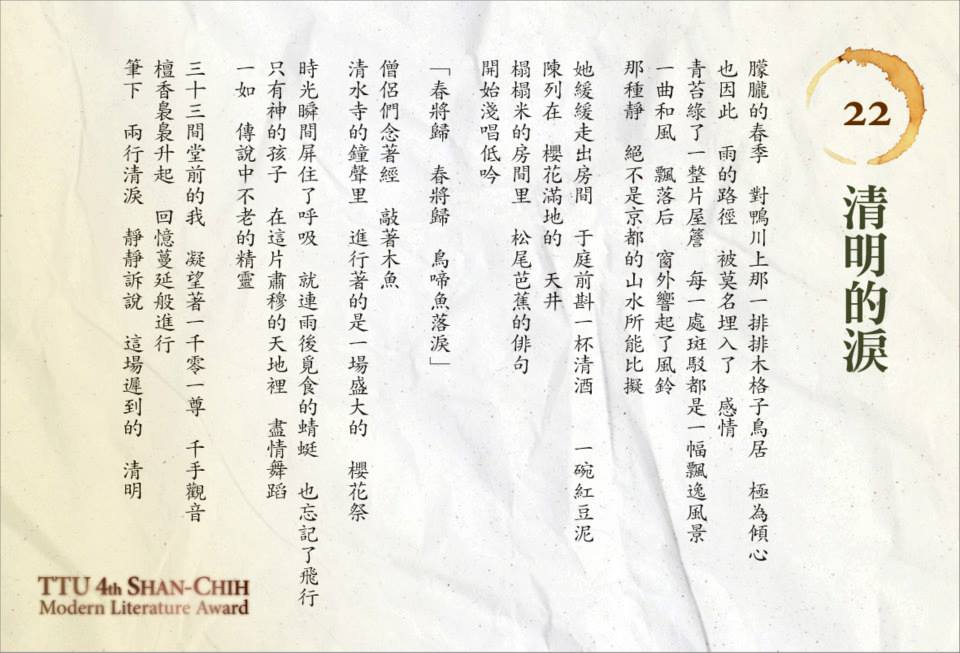 22
清明的淚
朦朧的春季 對鴨川上那一排排木格子鳥居 極為傾心
也因此 雨的路徑 被莫名埋入了 感情
青苔綠了一整片屋簷 每一處斑駁都是一幅飄逸風景
一曲和風 飄落后 窗外響起了風鈴
那種靜 絕不是京都的山水所能比擬
她緩緩走出房間 于庭前斟一杯清酒 一碗紅豆泥
陳列在 櫻花滿地的 天井
榻榻米的房間里 松尾芭蕉的俳句
開始淺唱低吟
「春將歸 春將歸 鳥啼魚落淚」
僧侶們念著經 敲著木魚
清水寺的鐘聲里 進行著的是一場盛大的 櫻花祭
時光瞬間屏住了呼吸 就連雨後覓食的蜻蜓 也忘記了飛行
只有神的孩子 在這片肅穆的天地裡 盡情舞蹈
一如 傳說中不老的精靈
三十三間堂前的我 凝望著一千零一尊 千手觀音
檀香裊裊升起 回憶蔓延般進行
筆下 兩行清淚 靜靜訴說 這場遲到的 清明
TTU 4th SHAN-CHIH
Modern Literature Award